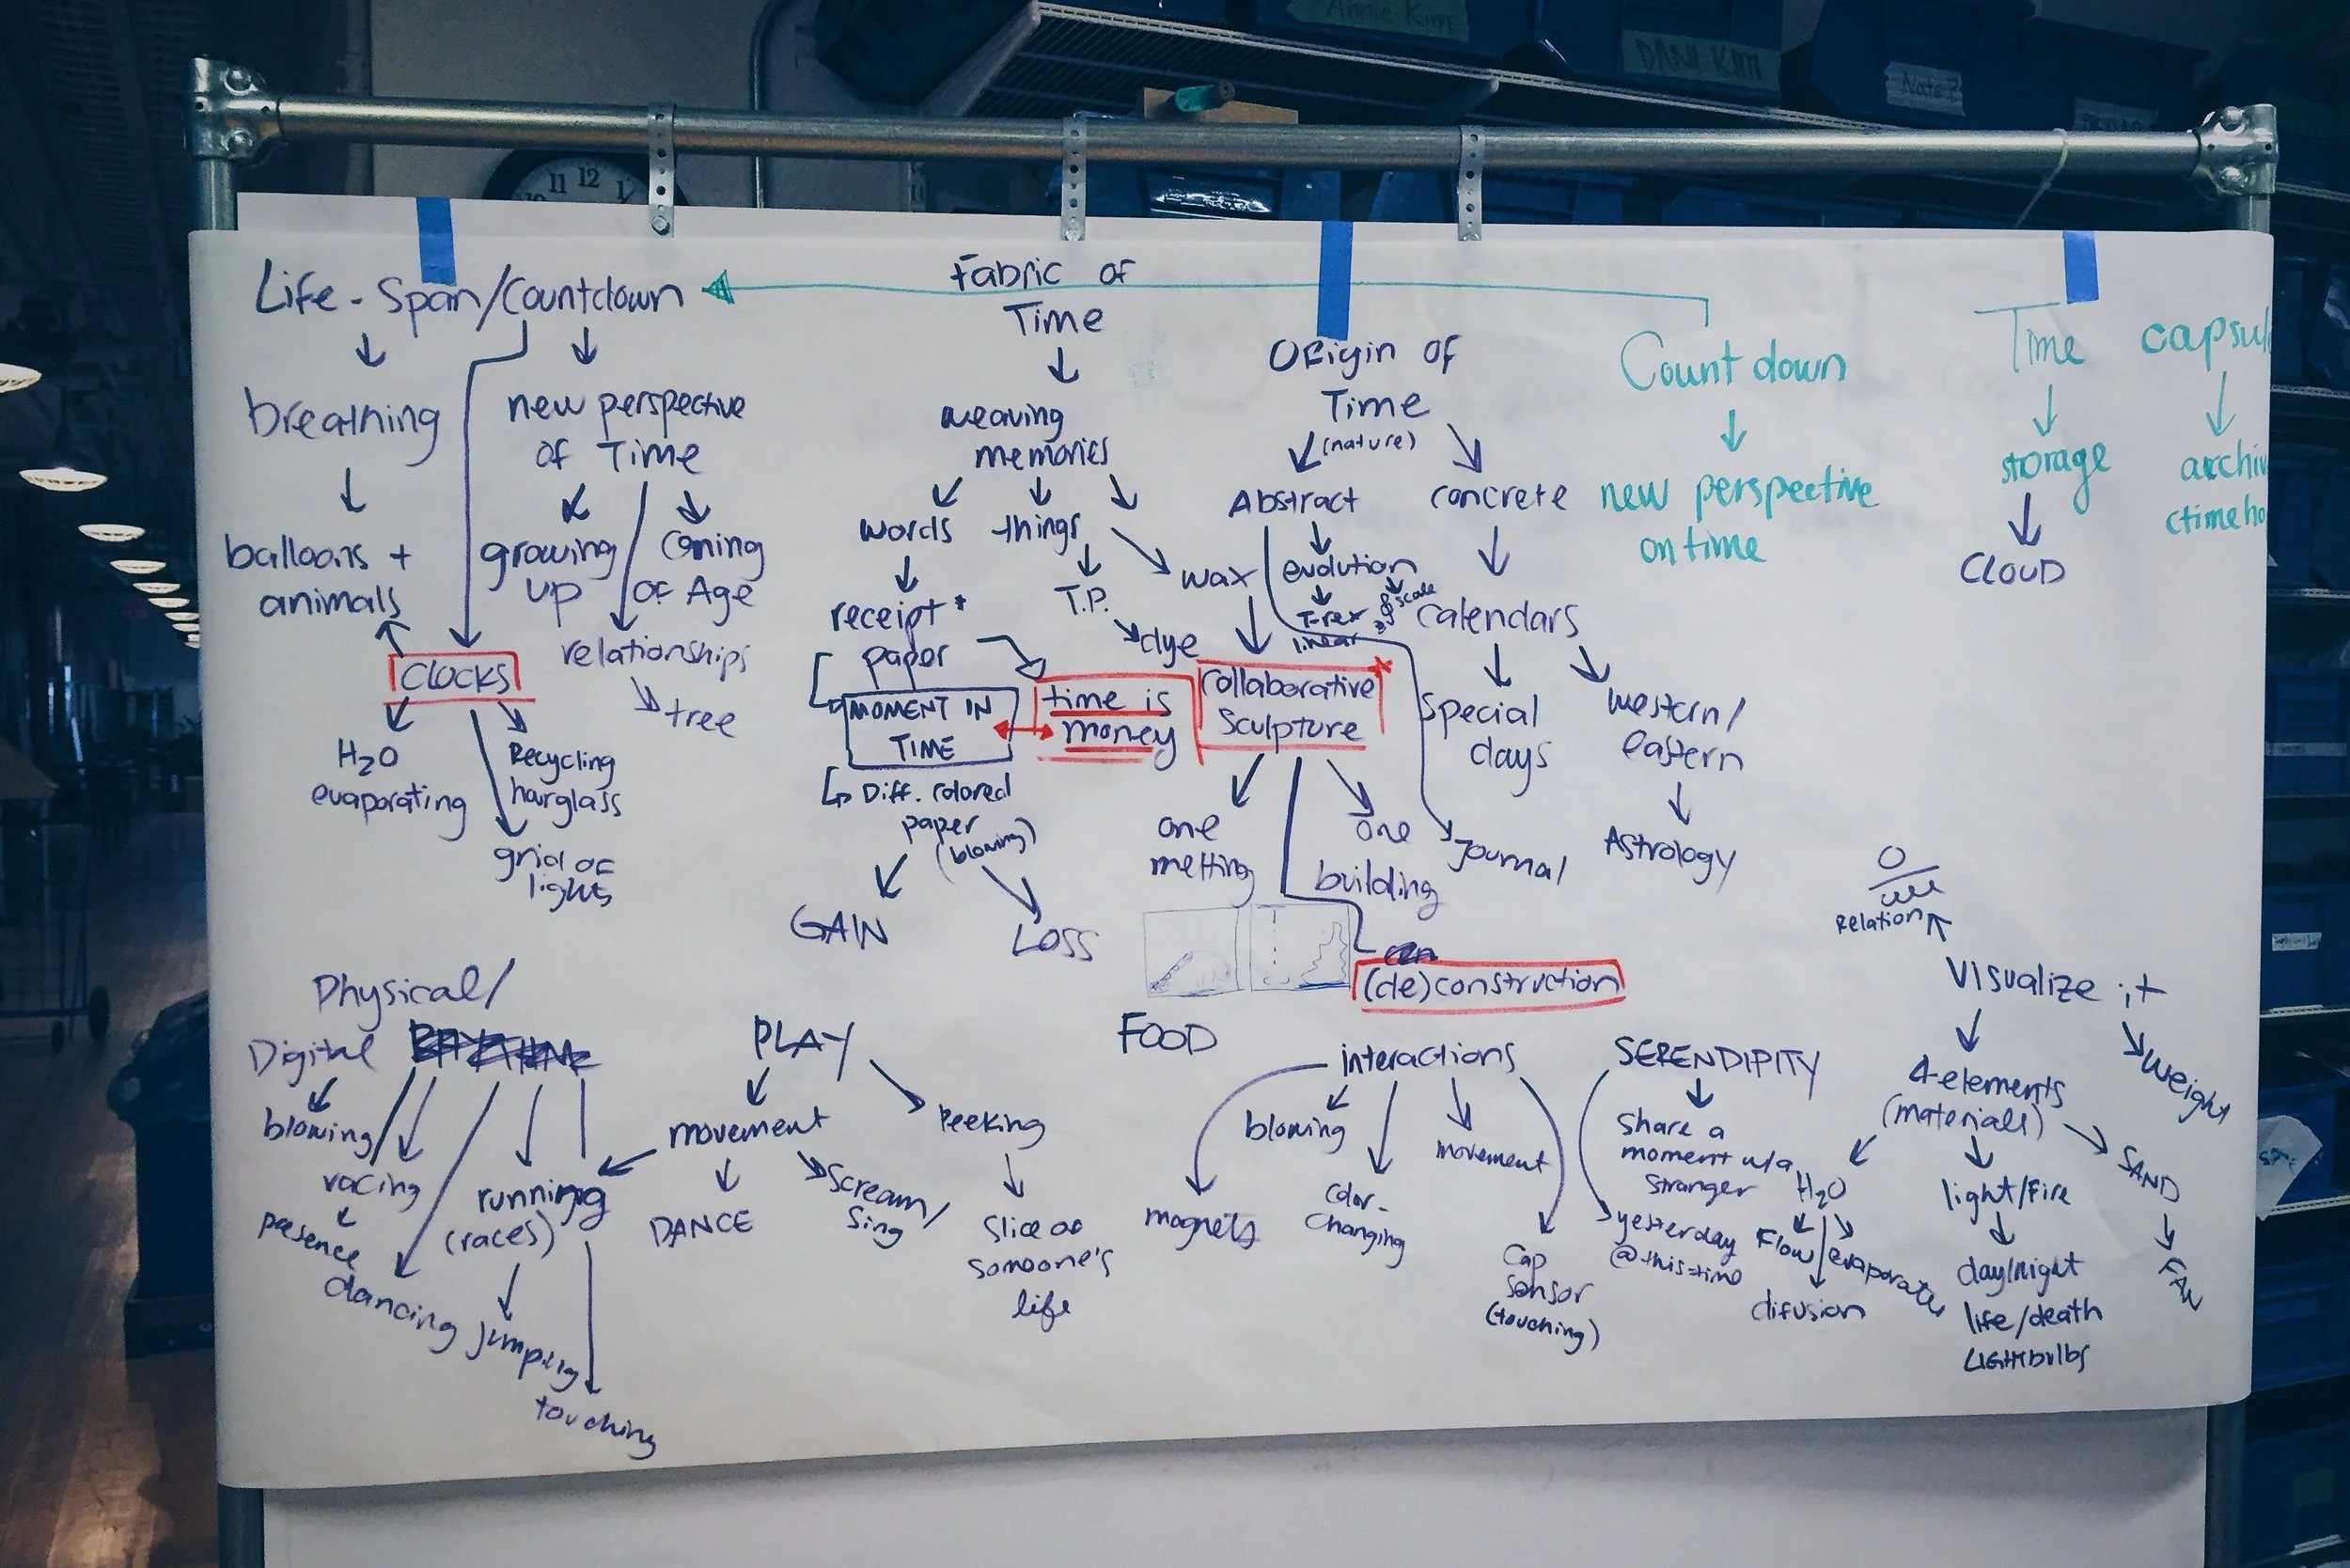 Annie Kim
DANI KIM
Nate
11 12 1
Life-Span/Countdown
breathing
balloons +
animals
new perspective
of Time
growing
up
Coming
of Age
relationships
tree
CLOCKS
H₂O
evaporating
Recycling
hourglass
grid of
lights
Fabric of
Time
weaving
memories
words
things
wax
receipt *
paper
T.P.
dye
MOMENT IN
TIME
time is
money
Diff. colored
paper
(blowing)
GAIN
LOSS
Collaborative
Sculpture
one
melting
one
building
(de)construction
Origin of
Time
(nature)
Abstract
concrete
evolution
scale
T-rex
linear
calendars
Special
days
western/
eastern
Journal
Astrology
Count down
new perspective
on time
Time capsul
storage
archiv
(timeho
CLOUD
Physical/
Digital
blowing
racing
presence
dancing
running
(races)
jumping
touching
PLAY
movement
Peeking
DANCE
Scream/
Sing
Slice of
someone's
life
FOOD
interactions
blowing
movement
magnets
color-
changing
Cap
sensor
(touching)
SERENDIPITY
Share a
moment w/a
stranger
yesterday
@this time
Relation
Visualize it
4 elements
(materials)
weight
H₂O
light/fire
SAND
Flow
evaporate
difusion
day/night
life/death
LIGHTbulbs
FAN